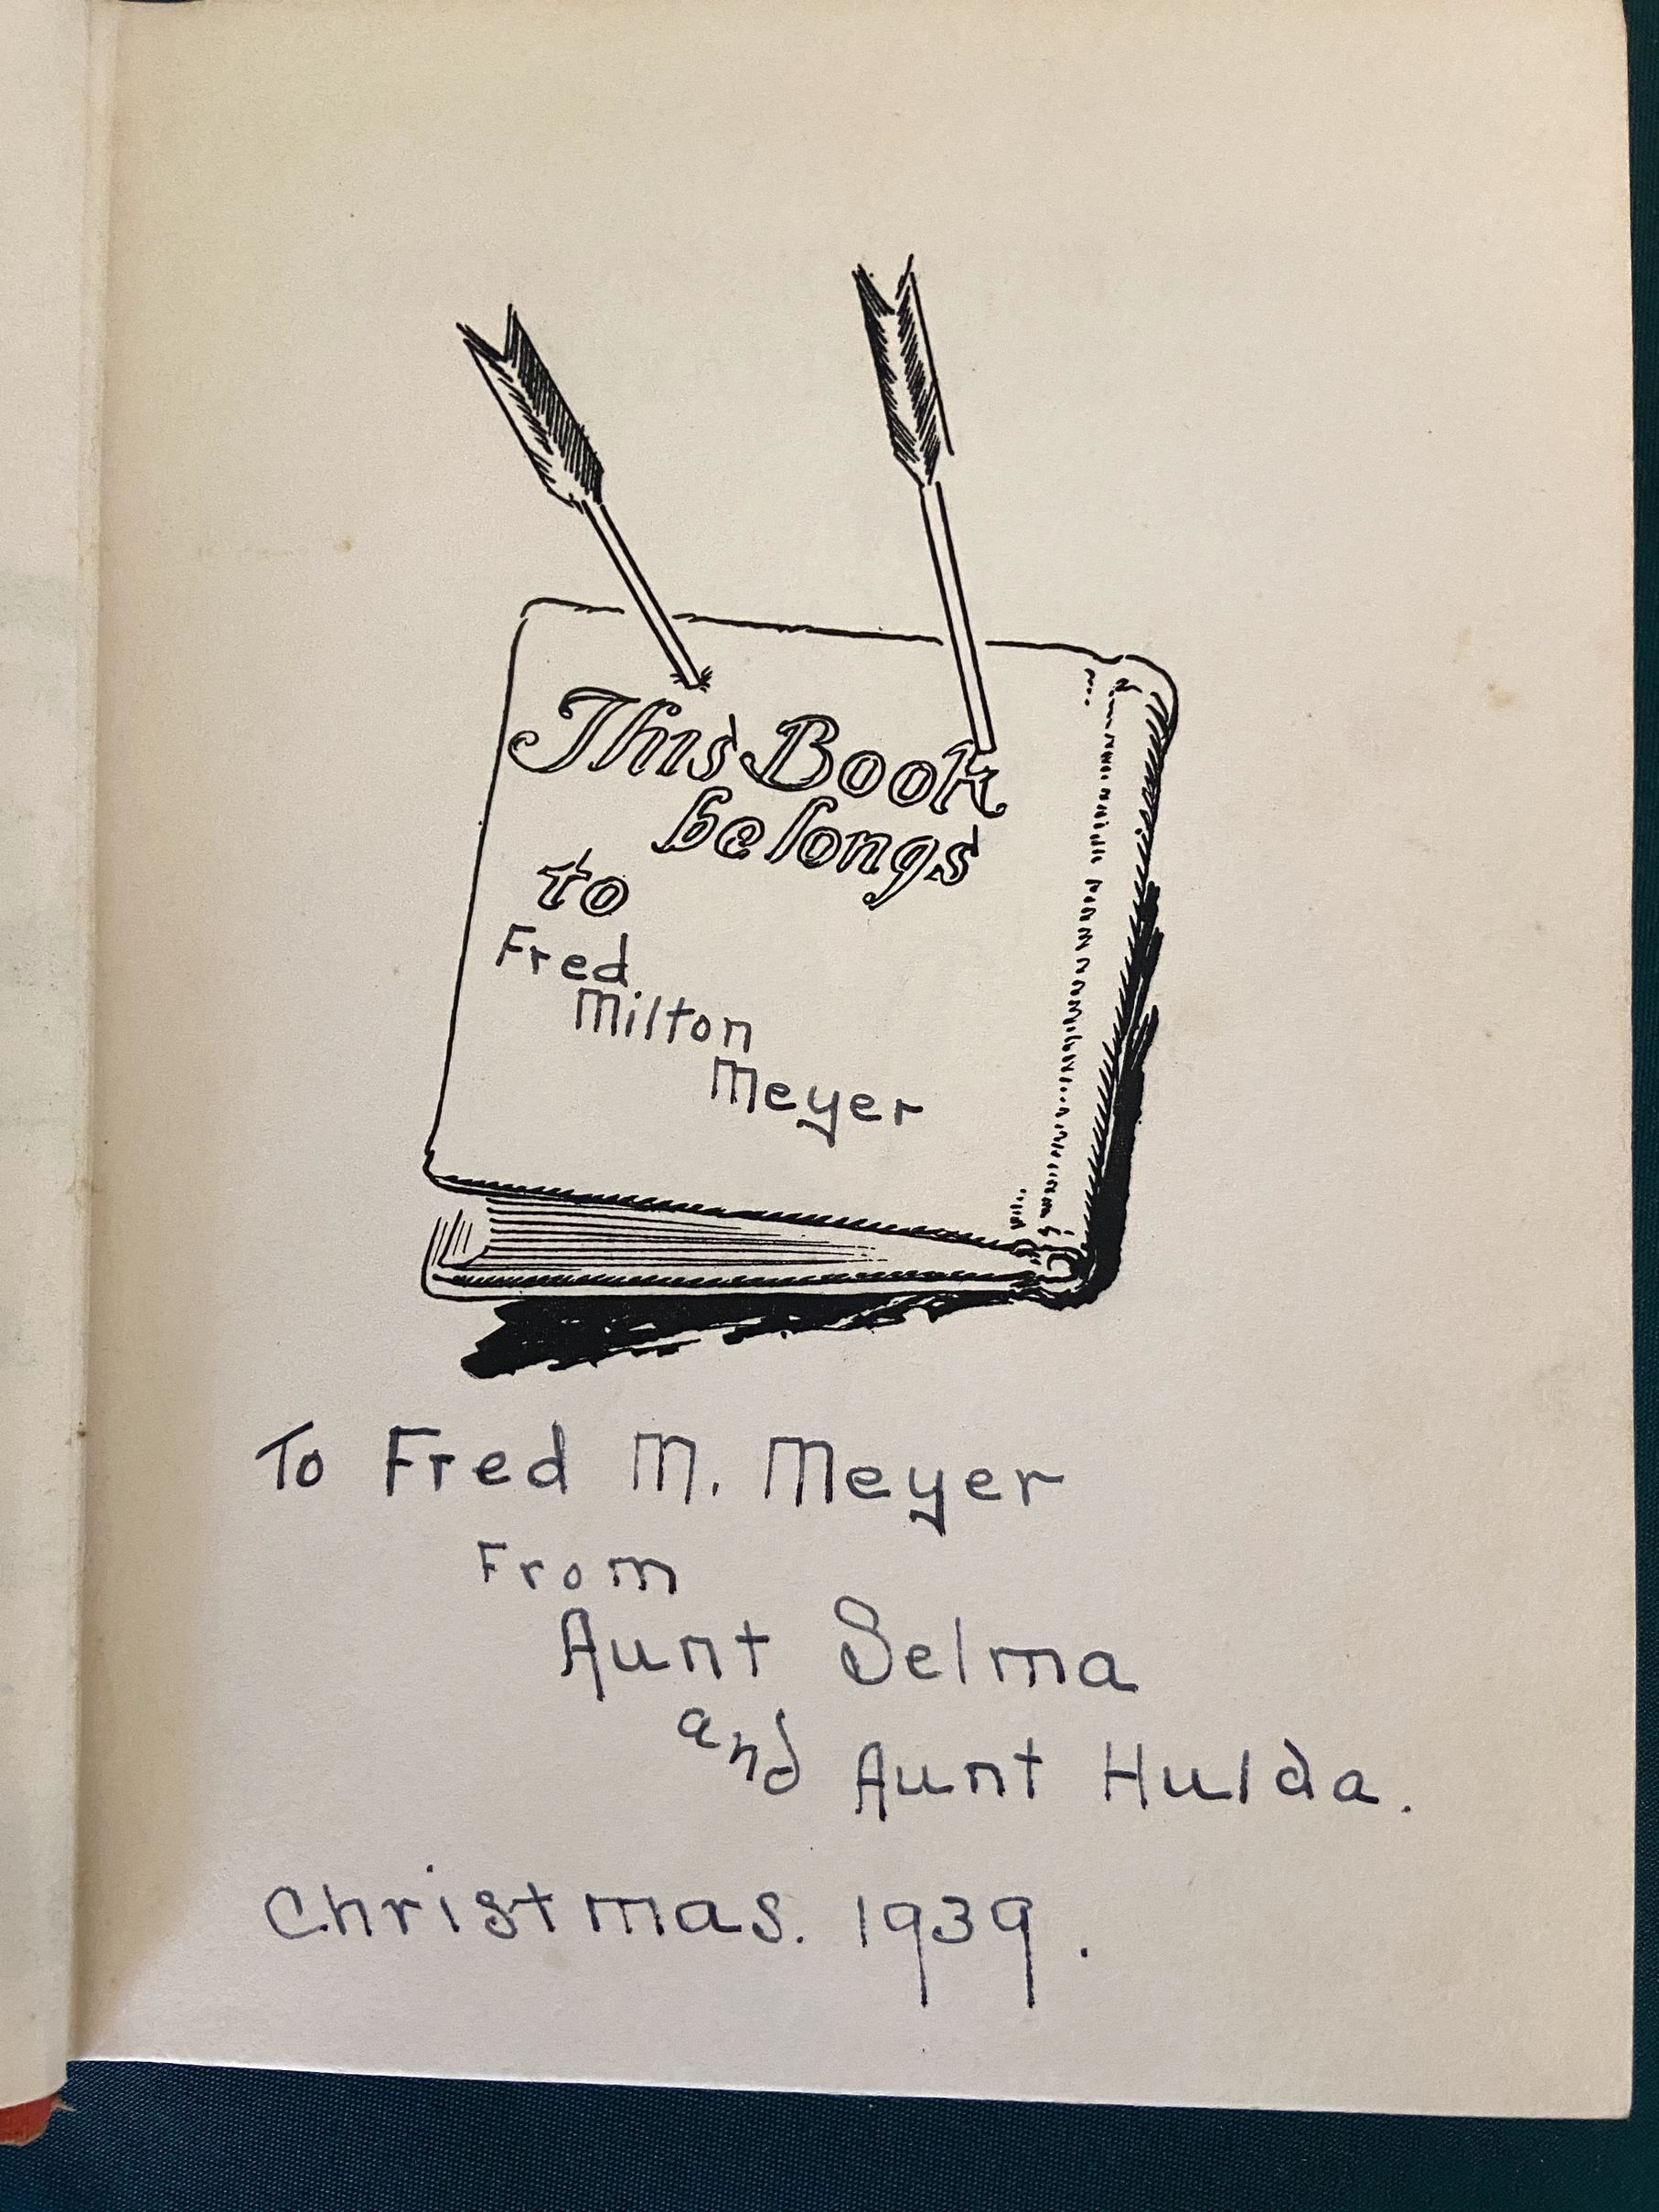 This Book
belongs
to
Fred
Milton
Meyer
To Fred M. Meyer
From
Aunt Selma
and Aunt Hulda.
Christmas. 1939.